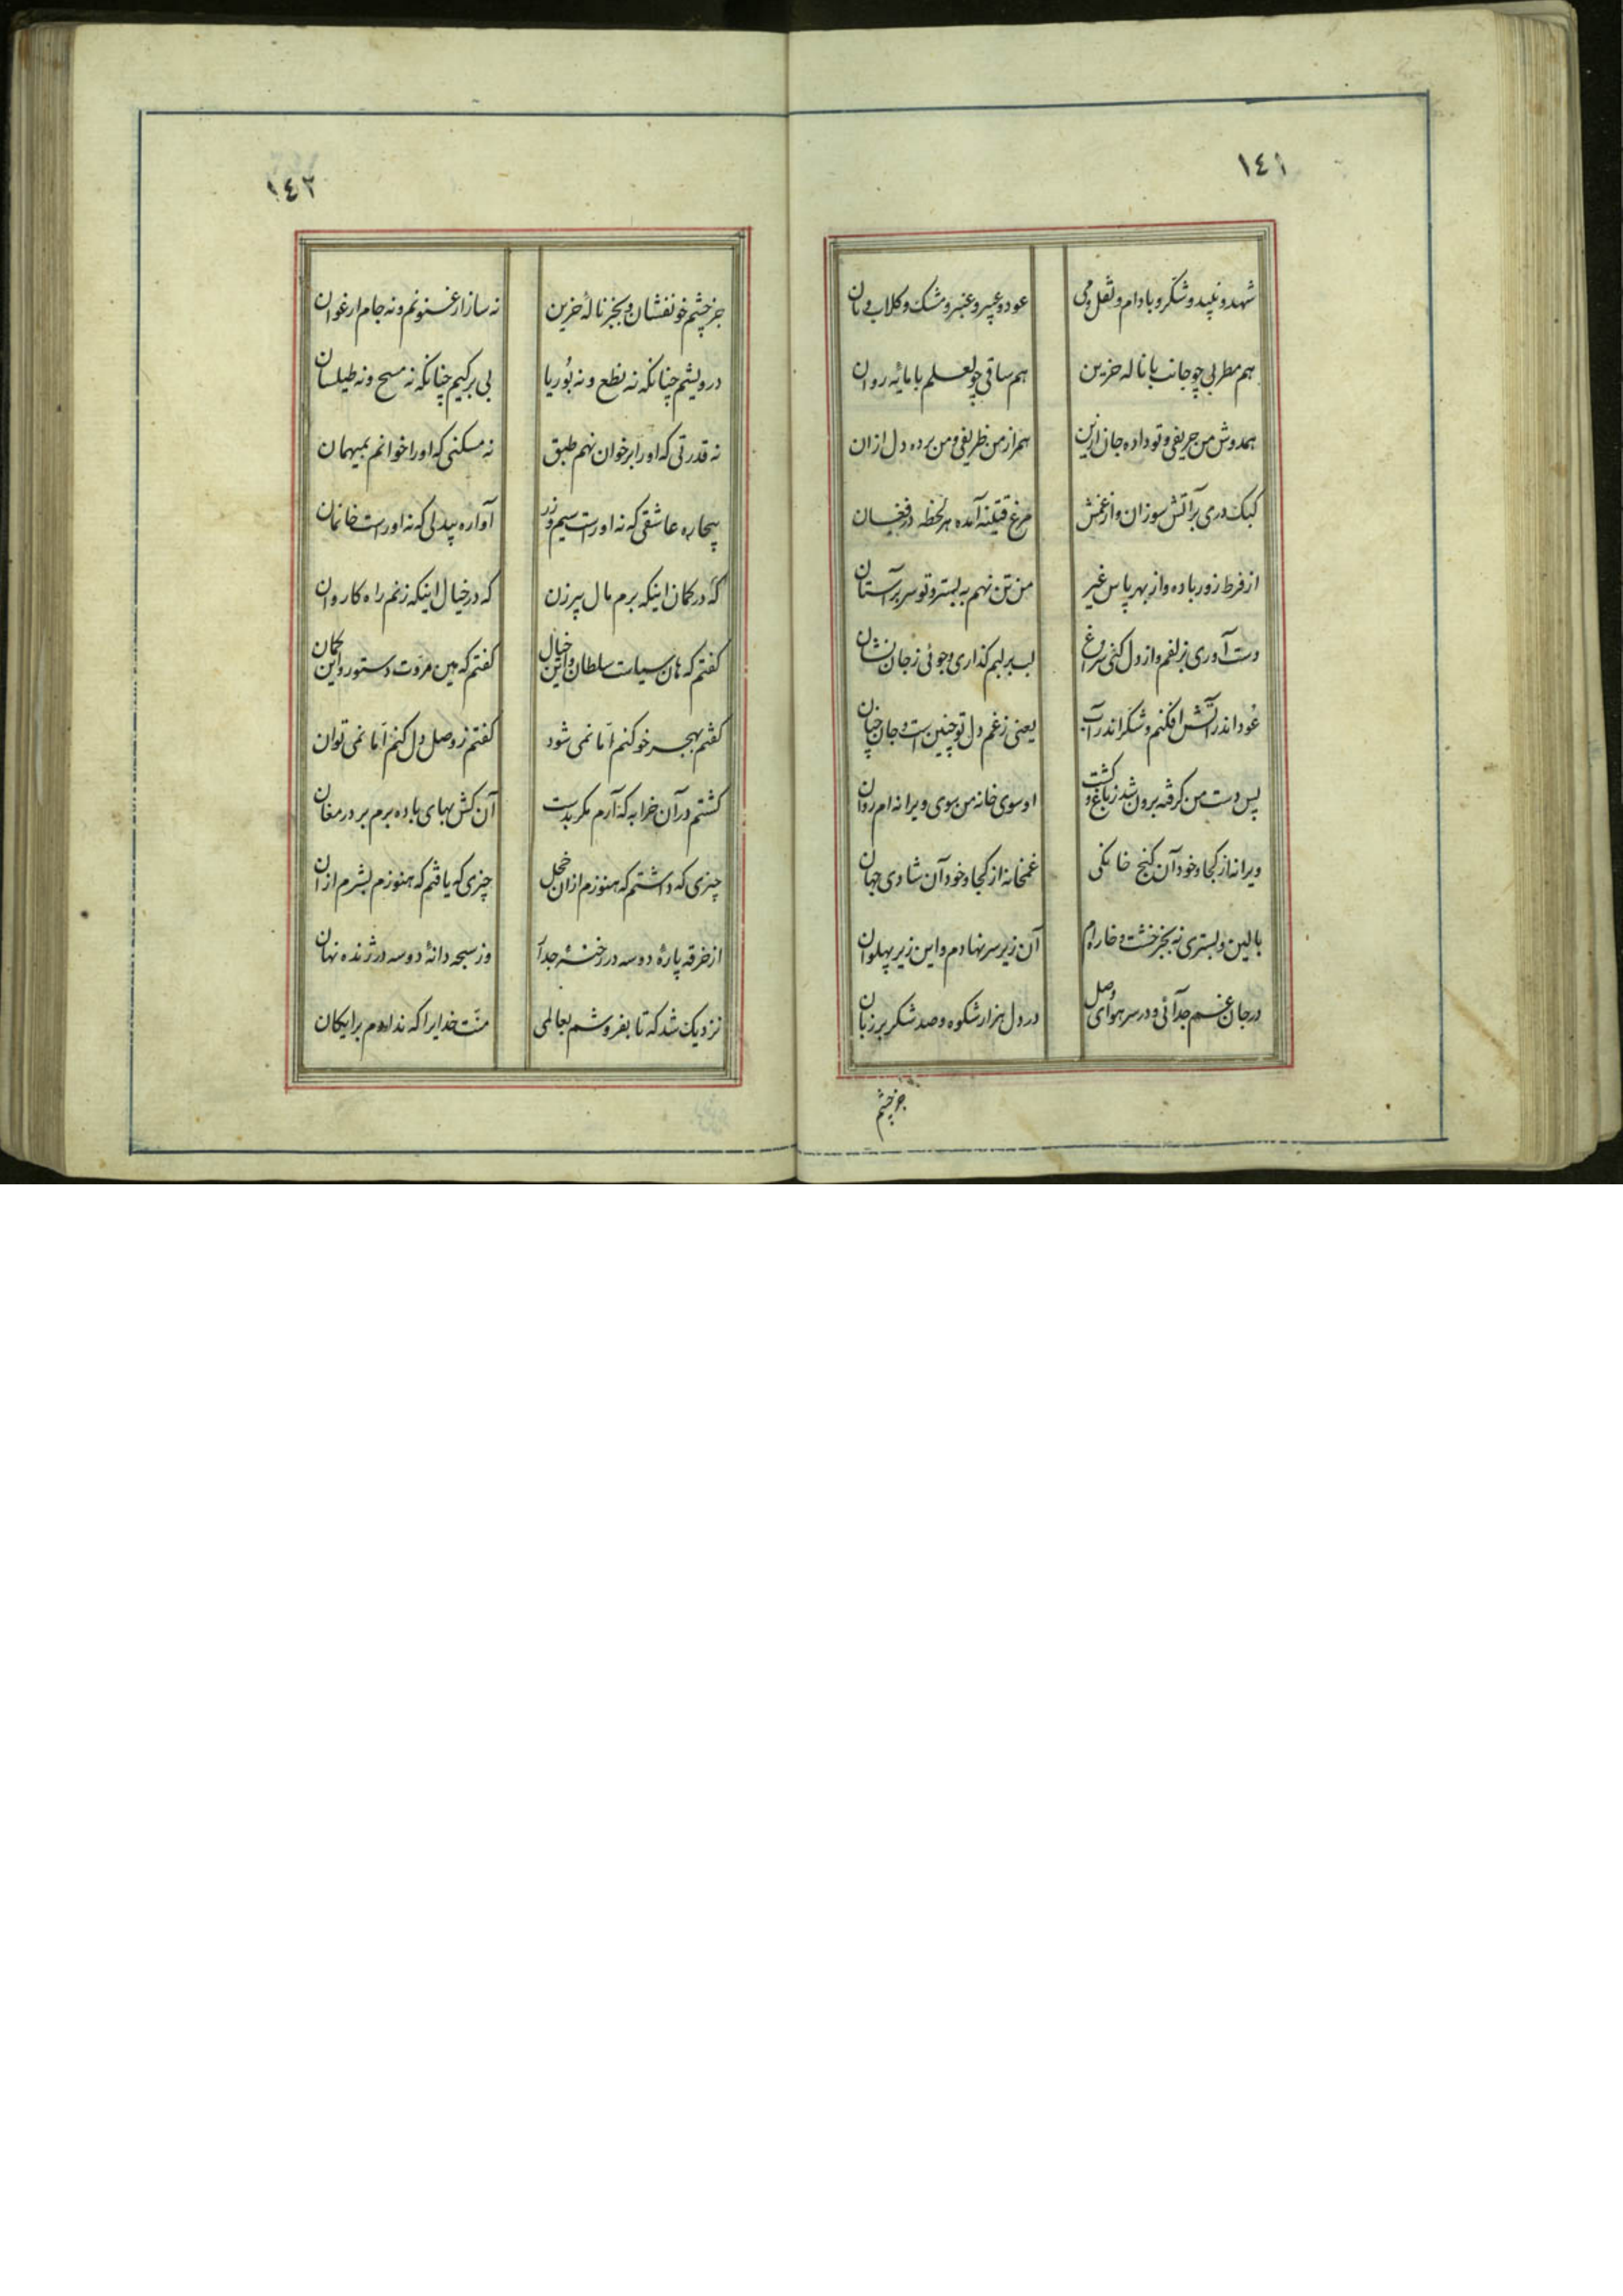 ١٤١
شهد و نبید و شکر و بادام و نقل و می
عود و عبیر و عنبر و مشک و گلاب و نان
هم مطربی چو جانب با ناله حزین
هم ساقی چو لعلم با مایه روان
همدوش من حریفی و تو داده جان ازین
همراز من ظریفی و من برده دل از آن
کبک دری بر آتش سوزان و از غمش
مرغ قنینه آمده هر لحظه در فغان
از فرط زور باده و از بهر پاس غیر
من تن نهم به بستر و تو سر بر آستان
دست آوری بزلفم و از دل کنی سراغ
لب بر لبم گذاری و جوئی ز جان نشان
عود اندر آتش افکنم و شکر اندر آب
یعنی ز غم دل تو چنین است و جان چنان
پس دست من گرفته برون شد ز باغ و گشت
او سوی خانه من سوی ویرانه ام روان
ویرانه از کجا و خود آن کنج خانگی
غمخانه از کجا و خود آن شادی جهان
بالین و بستری نه بجز خشت و خاره ام
آن زیر سر نهادم و این زیر پهلوان
در جان غم جدائی و در سر هوای وصل
در دل هزار شکوه و صد شکر بر زبان
جز چشم
١٤٢
جز چشم خونفشان و بجز نالهٔ حزین
نه ساز ارغنونم و نه جام ارغوان
درویشم چنانکه نه نطع و نه بوریا
بی برگیم چنانکه نه مسح و نه طیلسان
نه قدرتی که او را بر خوان نهم طبق
نه مسکنی که او را خوانم بمیهمان
بیچاره عاشقی که نه او راست سیم و زر
آواره بیدلی که نه او راست خانمان
که در گمان اینکه برم مال پیرزن
که در خیال اینکه زنم راه کاروان
گفتم که هان سیاست سلطان و این خیال
گفتم که هین مروّت دستور و این گمان
گفتم بهجر خو کنم امّا نمی شود
گفتم ز وصل دل کنم امّا نمی توان
گشتم در آن خرابه که آرم مگر بدست
آن کش بهای باده برم بر در مغان
چیزی که داشتم که هنوزم از آن خجل
چیزی که یافتم که هنوزم بشرم از آن
از خرقه پارهٔ دو سه در رخنهٔ جدا
وز سبحه دانهٔ دو سه در ژنده نهان
نزدیک شد که تا بفروشم بعالمی
منّت خدایرا که ندادم برایگان